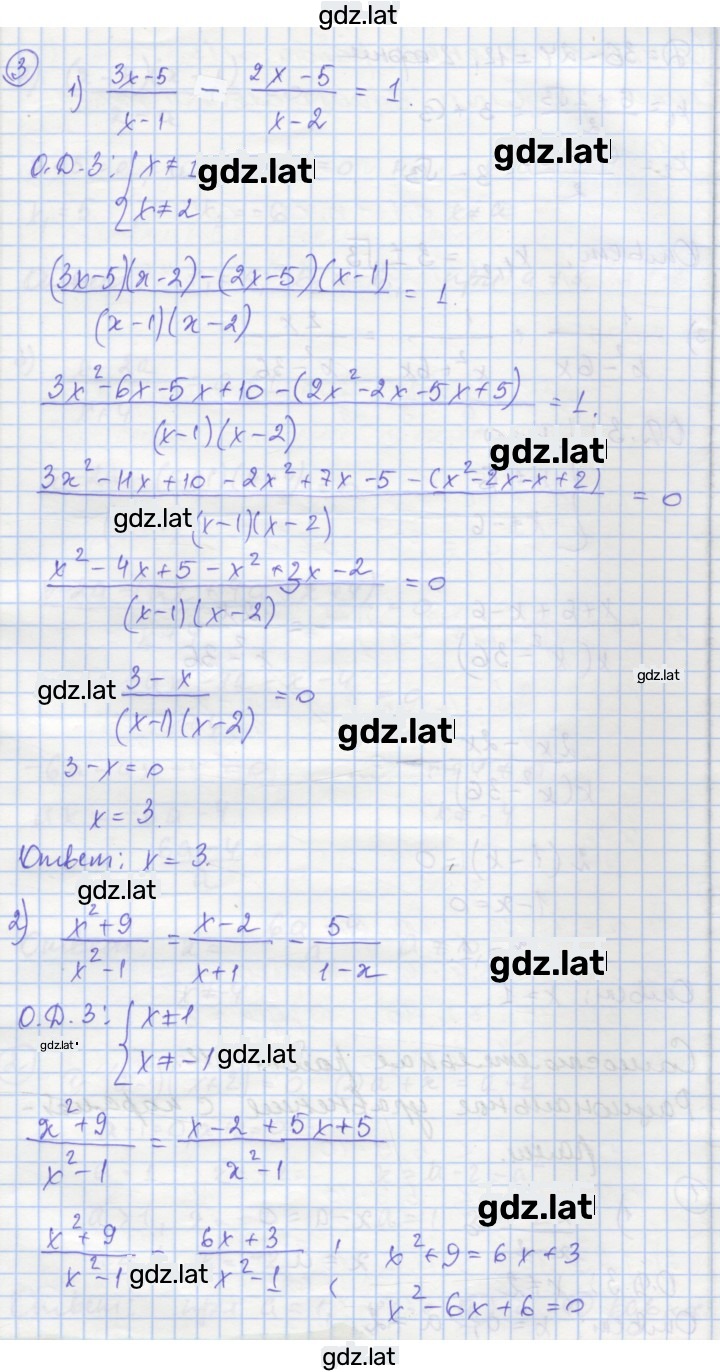 gdz.lat
3
1) (3x-5)/(x-1) - (2x-5)/(x-2) = 1.
gdz.lat
О.Д.З: { x≠1 gdz.lat
{ x≠2
((3x-5)(x-2)-(2x-5)(x-1))/((x-1)(x-2)) = 1.
(3x²-6x-5x+10-(2x²-2x-5x+5))/((x-1)(x-2)) = 1.
gdz.lat
(3x²-11x+10-2x²+7x-5-(x²-2x-x+2))/((x-1)(x-2)) = 0
gdz.lat
(x²-4x+5-x²+3x-2)/((x-1)(x-2)) = 0
gdz.lat
gdz.lat (3-x)/((x-1)(x-2)) = 0
gdz.lat
3-x=0
x=3.
Ответ: x=3.
gdz.lat
2) (x²+9)/(x²-1) = (x-2)/(x+1) - 5/(1-x)
gdz.lat
О.Д.З: { x≠1
gdz.lat
{ x≠-1 gdz.lat
(x²+9)/(x²-1) = (x-2+5x+5)/(x²-1)
gdz.lat
(x²+9)/(x²-1) - (6x+3)/(x²-1) ; x²+9=6x+3
gdz.lat
x²-6x+6=0
gdz.lat